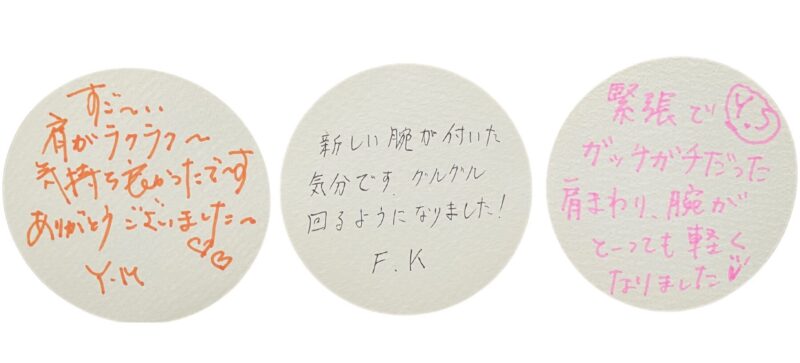 すご〜い
肩がラクラク〜
気持ち良かったで〜す
ありがとうございました〜
Y.M
新しい腕が付いた
気分です。グルグル
回るようになりました!
F.K
緊張で
Y.S
ガッチガチだった
肩まわり、腕が
とーっても軽く
なりました